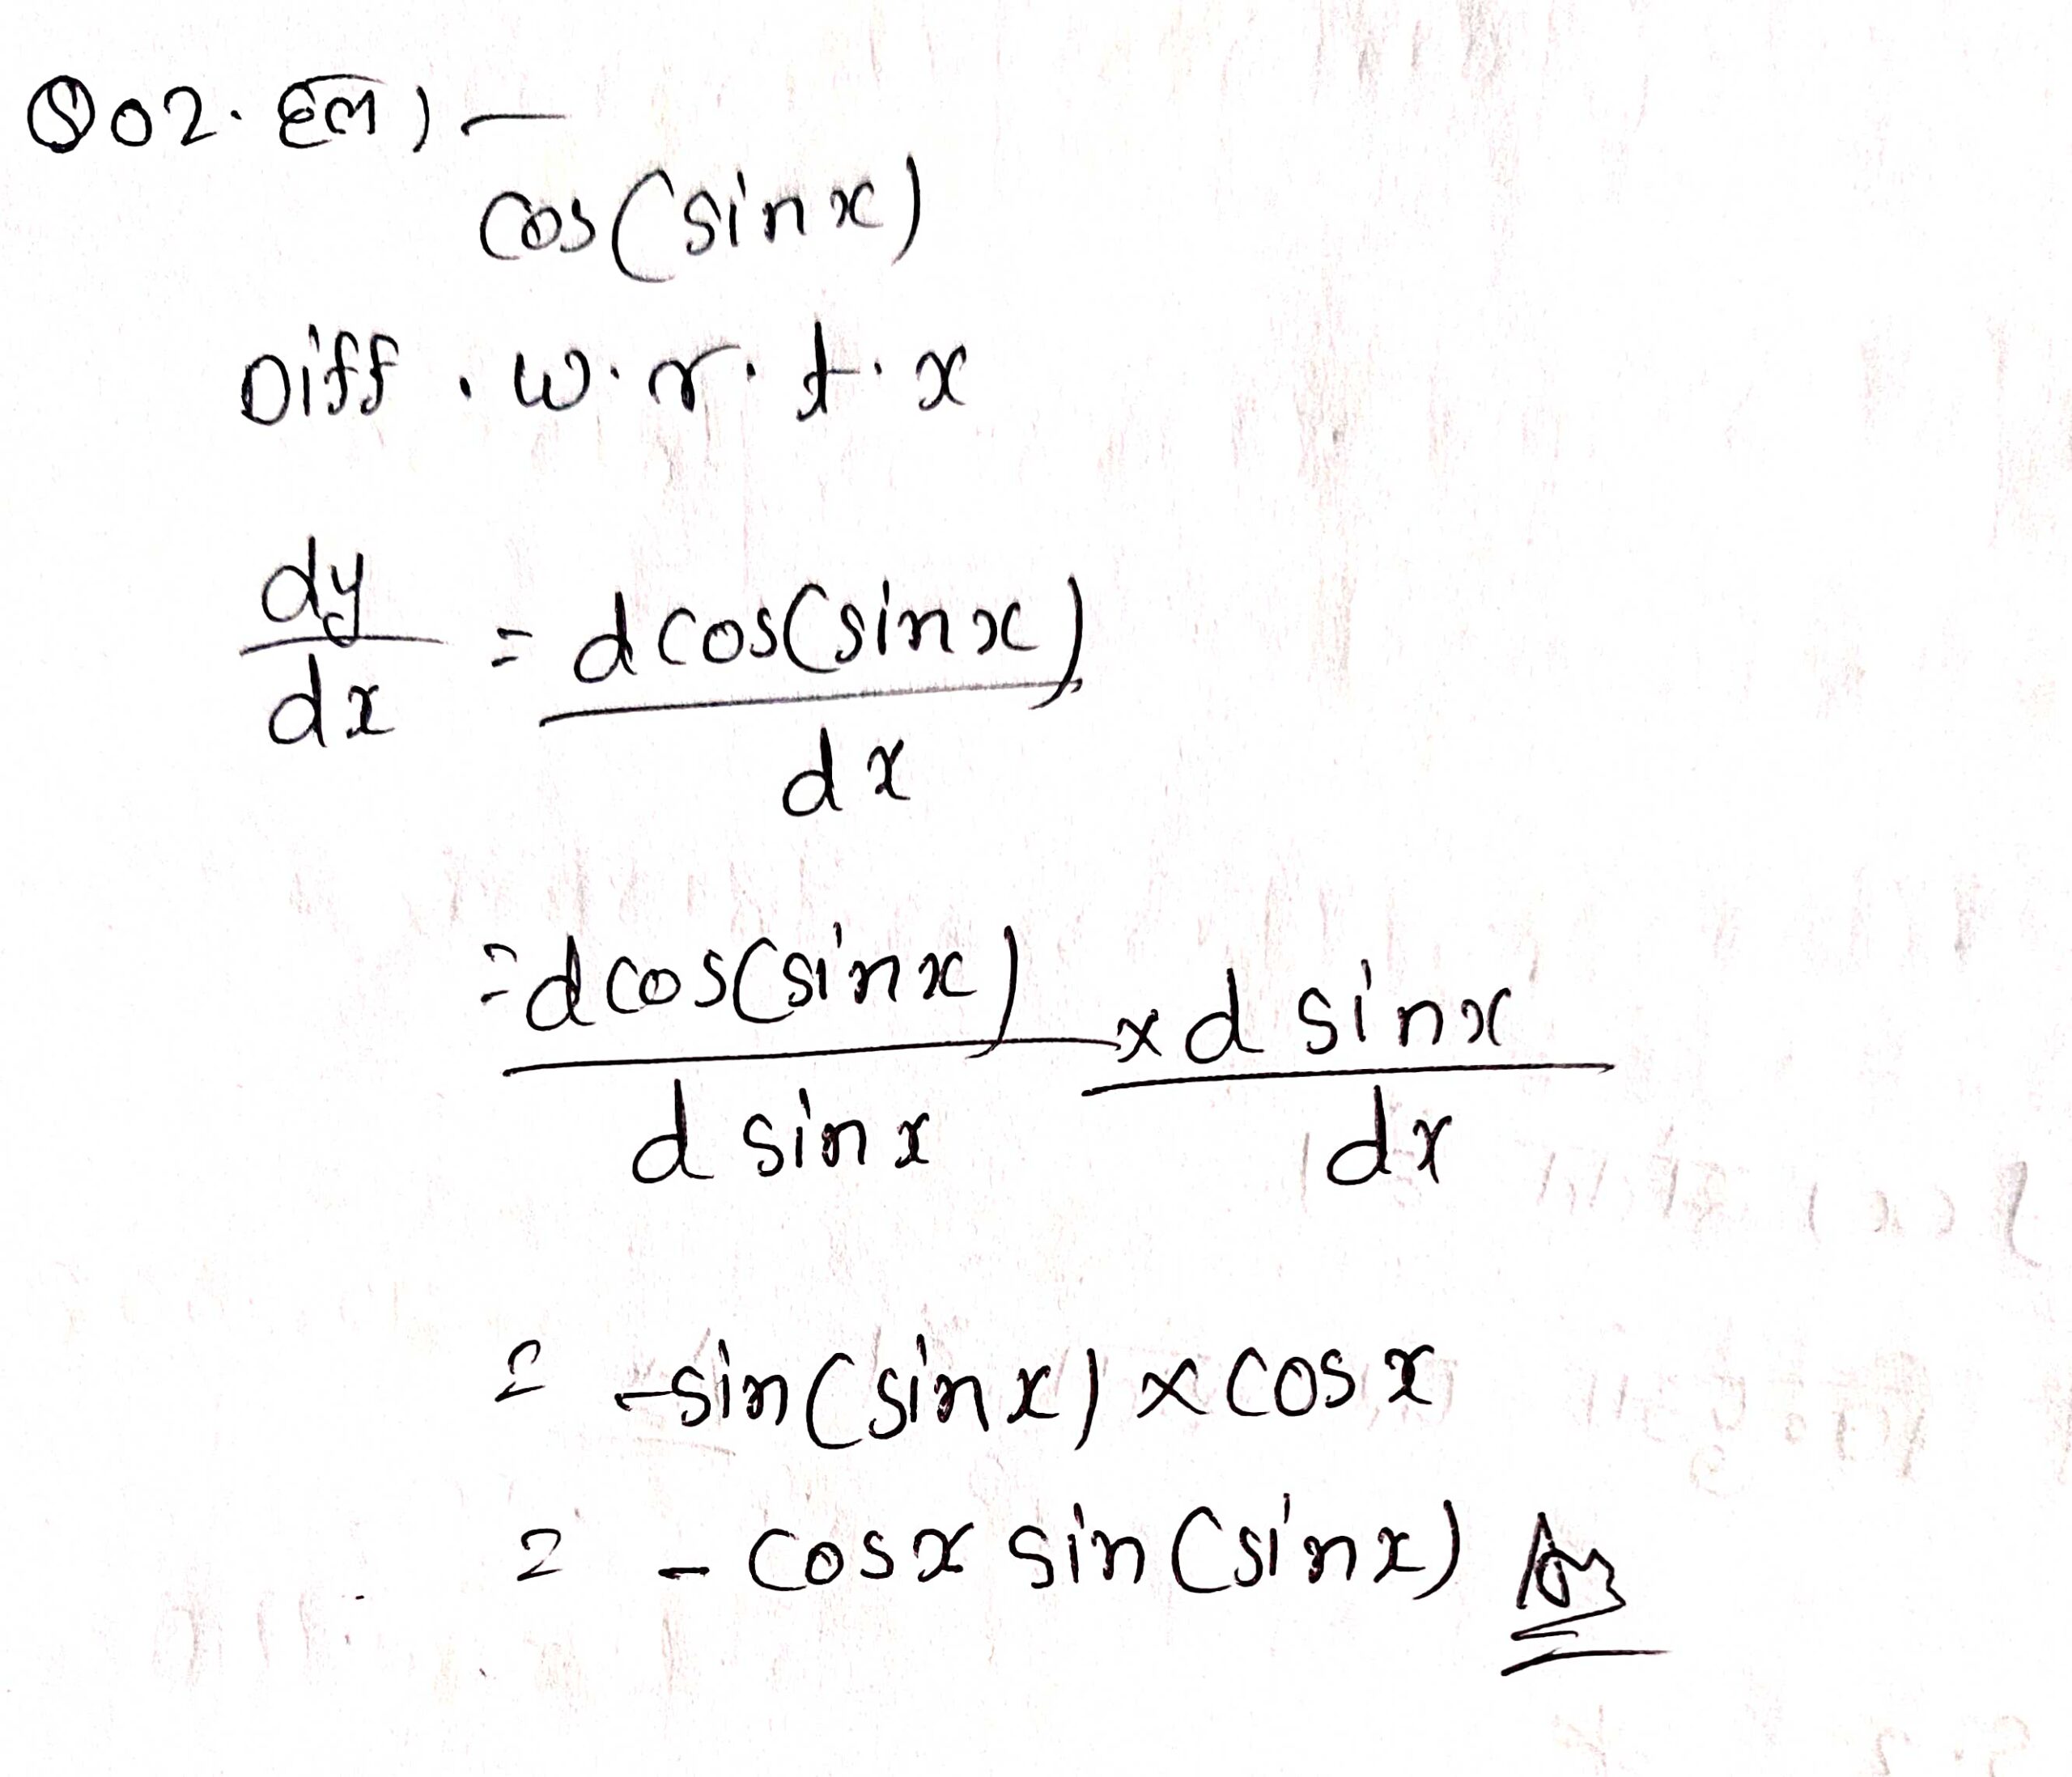 Q02. हल) —
cos(sinx)
Diff. w.r.t.x
dy/dx = d cos(sinx)/dx
= d cos(sinx)/d sinx × d sinx/dx
= -sin(sinx) × cosx
= - cosx sin(sinx) Ans